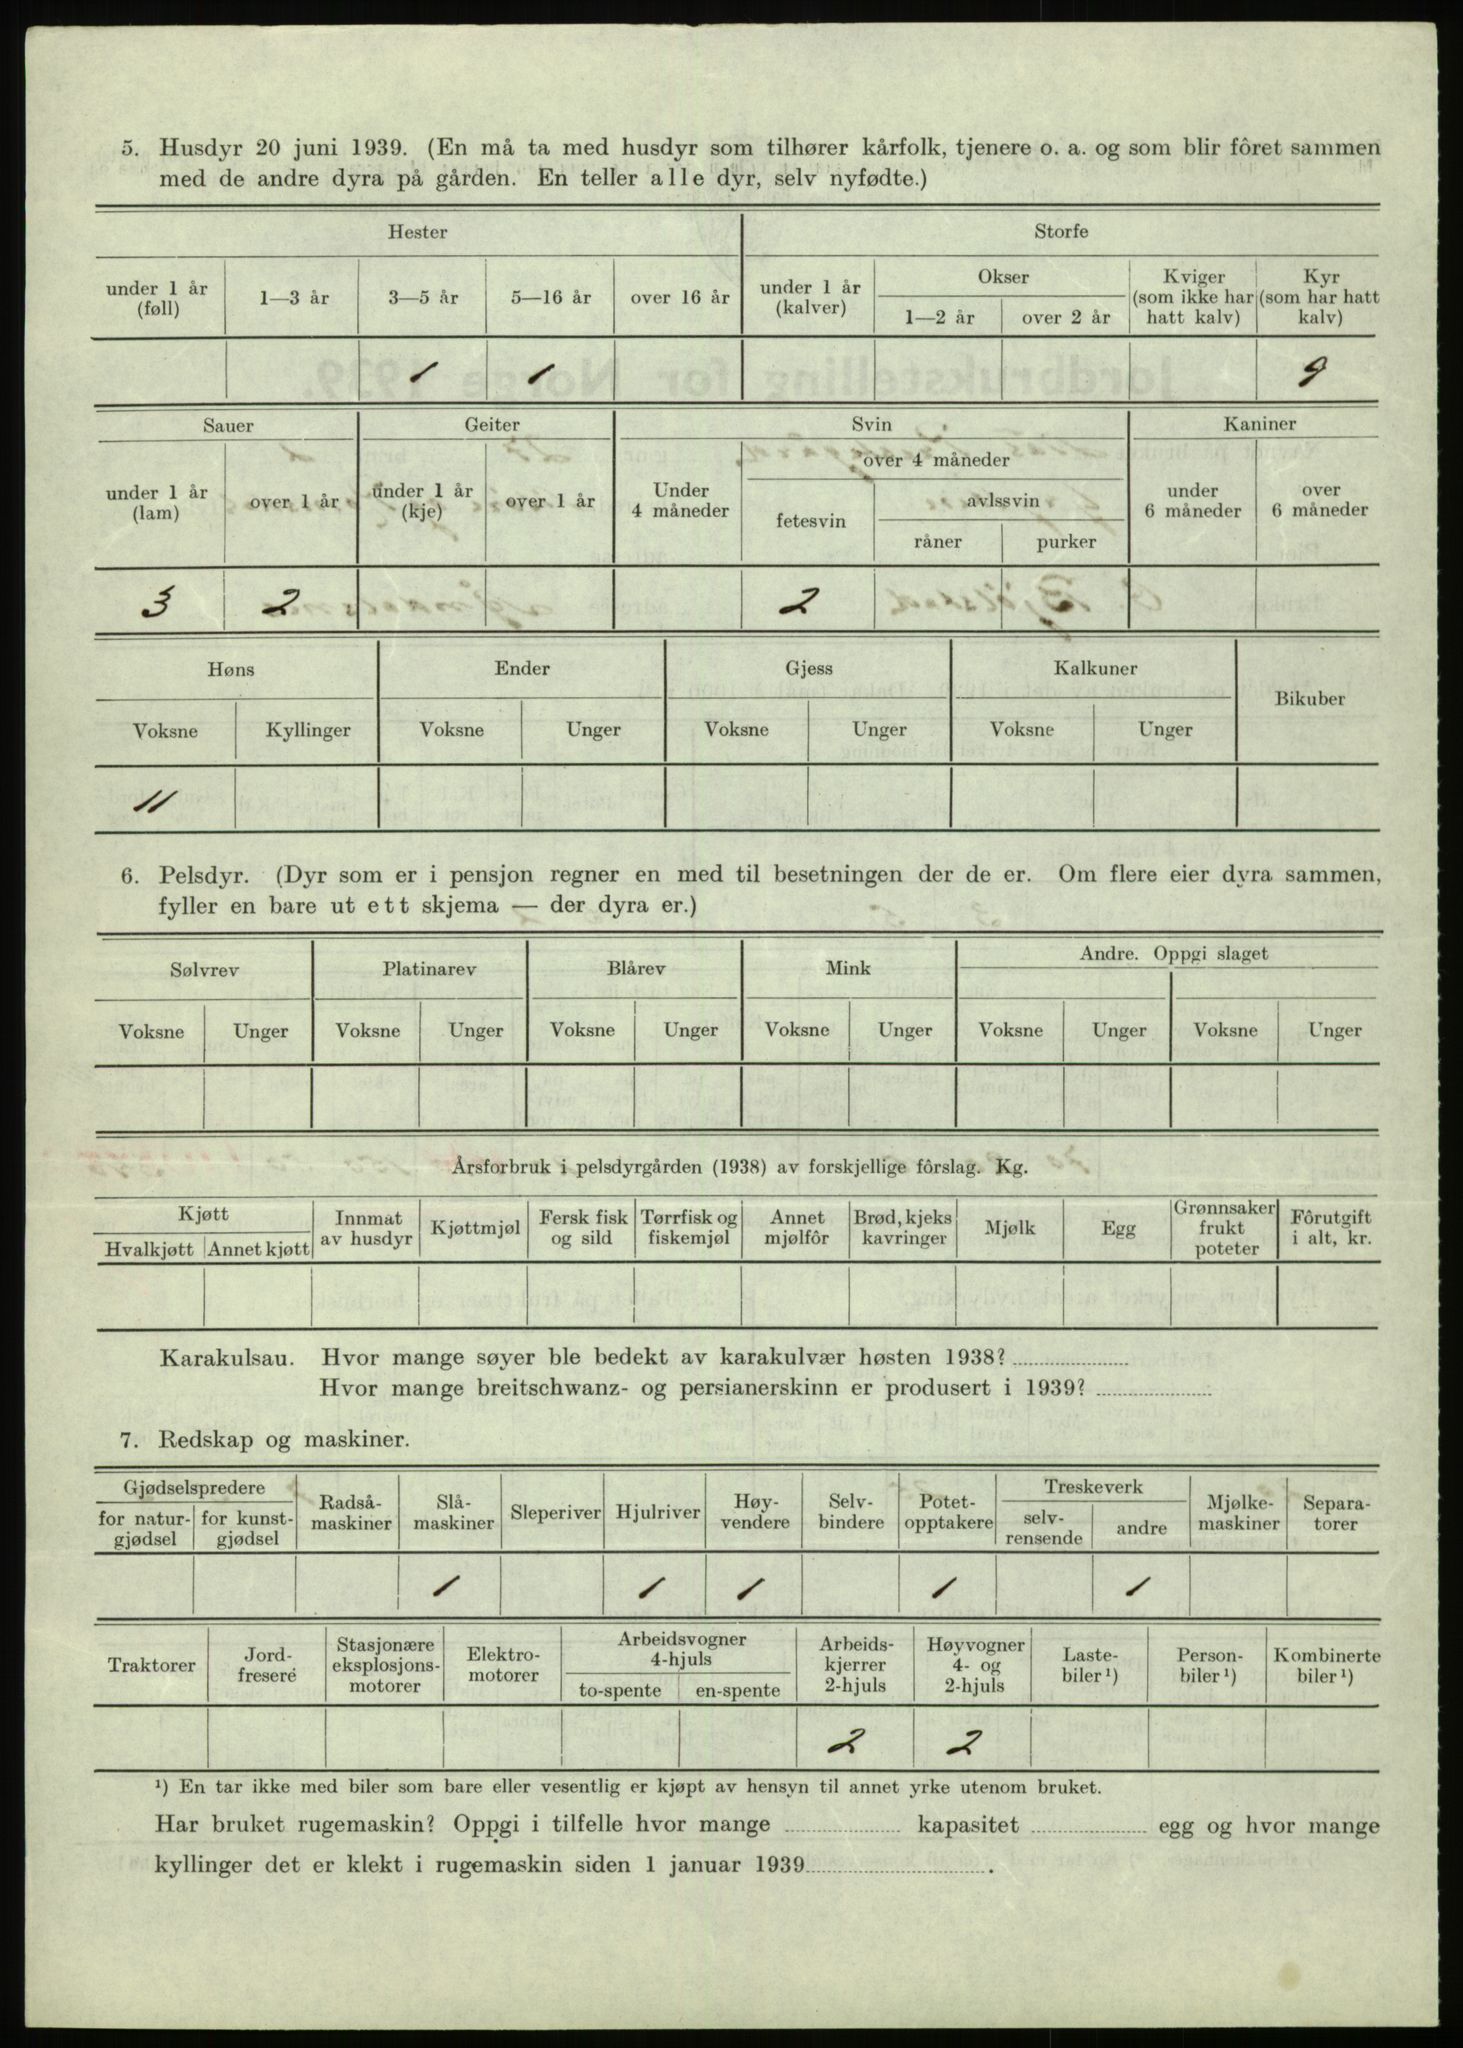 5. Husdyr 20 juni 1939. (En må ta med husdyr som tilhører kårfolk, tjenere o. a. og som blir fôret sammen
med de andre dyra på gården. En teller alle dyr, selv nyfødte.)
Hester Storfe
under 1 år (føll) 1—3 år 3—5 år 5—16 år over 16 år under 1 år (kalver) Okser 1—2 år over 2 år Kviger (som ikke har hatt kalv) Kyr (som har hatt kalv)
1 1 9
Sauer Geiter Svin Kaniner
under 1 år (lam) over 1 år under 1 år (kje) over 1 år Under 4 måneder over 4 måneder fetesvin avlssvin råner purker under 6 måneder over 6 måneder
3 2 2
Høns Ender Gjess Kalkuner Bikuber
Voksne Kyllinger Voksne Unger Voksne Unger Voksne Unger
11
6. Pelsdyr. (Dyr som er i pensjon regner en med til besetningen der de er. Om flere eier dyra sammen,
fyller en bare ut ett skjema — der dyra er.)
Sølvrev Platinarev Blårev Mink Andre. Oppgi slaget
Voksne Unger Voksne Unger Voksne Unger Voksne Unger Voksne Unger Voksne Unger
Årsforbruk i pelsdyrgården (1938) av forskjellige fôrslag. Kg.
Kjøtt Hvalkjøtt Annet kjøtt Innmat av husdyr Kjøttmjøl Fersk fisk og sild Tørrfisk og fiskemjøl Annet mjølfôr Brød, kjeks kavringer Mjølk Egg Grønnsaker frukt poteter Fôrutgift i alt, kr.
Karakulsau. Hvor mange søyer ble bedekt av karakulvær høsten 1938?
Hvor mange breitschwanz- og persianerskinn er produsert i 1939?
7. Redskap og maskiner.
Gjødselspredere for natur-gjødsel for kunst-gjødsel Radså-maskiner Slå-maskiner Sleperiver Hjulriver Høy-vendere Selv-bindere Potet-opptakere Treskeverk selv-rensende andre Mjølke-maskiner Separa-torer
1 1 1 1 1
Traktorer Jord-fresere Stasjonære eksplosjons-motorer Elektro-motorer Arbeidsvogner 4-hjuls to-spente en-spente Arbeids-kjerrer 2-hjuls Høyvogner 4- og 2-hjuls Laste-biler ¹) Person-biler ¹) Kombinerte biler ¹)
2 2
¹) En tar ikke med biler som bare eller vesentlig er kjøpt av hensyn til annet yrke utenom bruket.
Har bruket rugemaskin? Oppgi i tilfelle hvor mange kapasitet egg og hvor mange
kyllinger det er klekt i rugemaskin siden 1 januar 1939 .